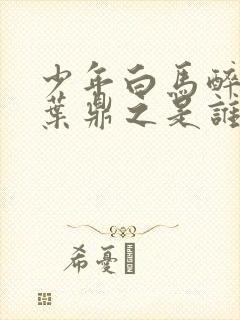 少年白馬醉
葉鼎之是誰
希憂